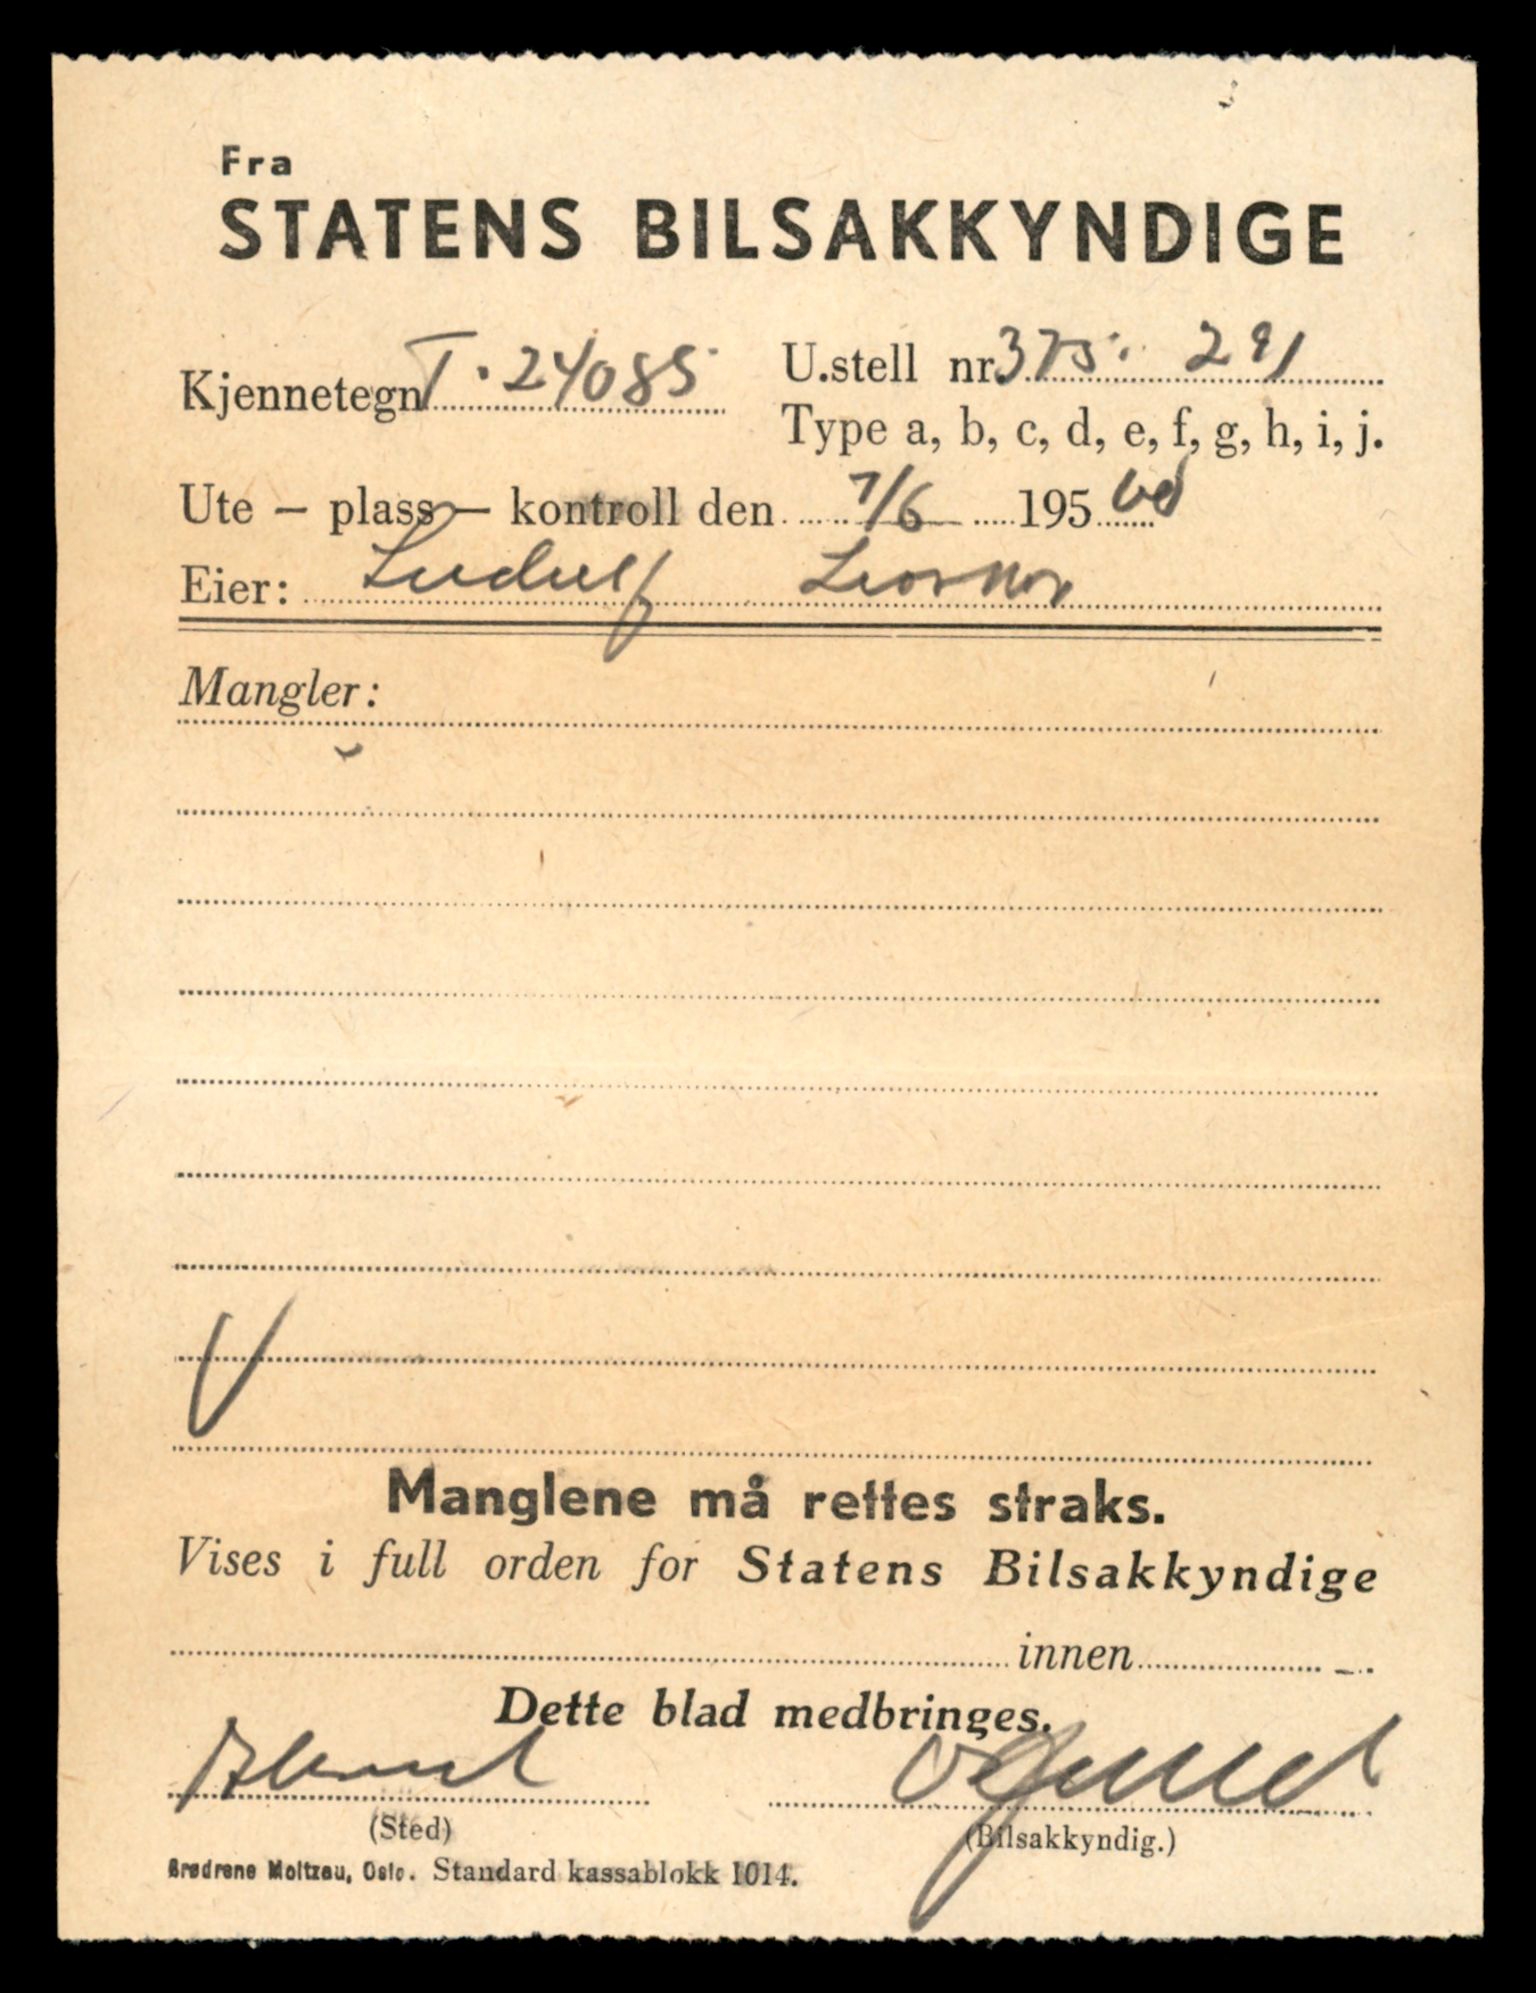 Fra
STATENS BILSAKKYNDIGE
Kjennetegn T. 24085 U.stell nr. 375. 291
Type a, b, c, d, e, f, g, h, i, j.
Ute – plass – kontroll den 7/6 195 60
Eier: Ludulf
Mangler:
Manglene må rettes straks.
Vises i full orden for Statens Bilsakkyndige
innen
Dette blad medbringes.
(Sted) (Bilsakkyndig.)
Brødrene Moltzau, Oslo. Standard kassablokk 1014.